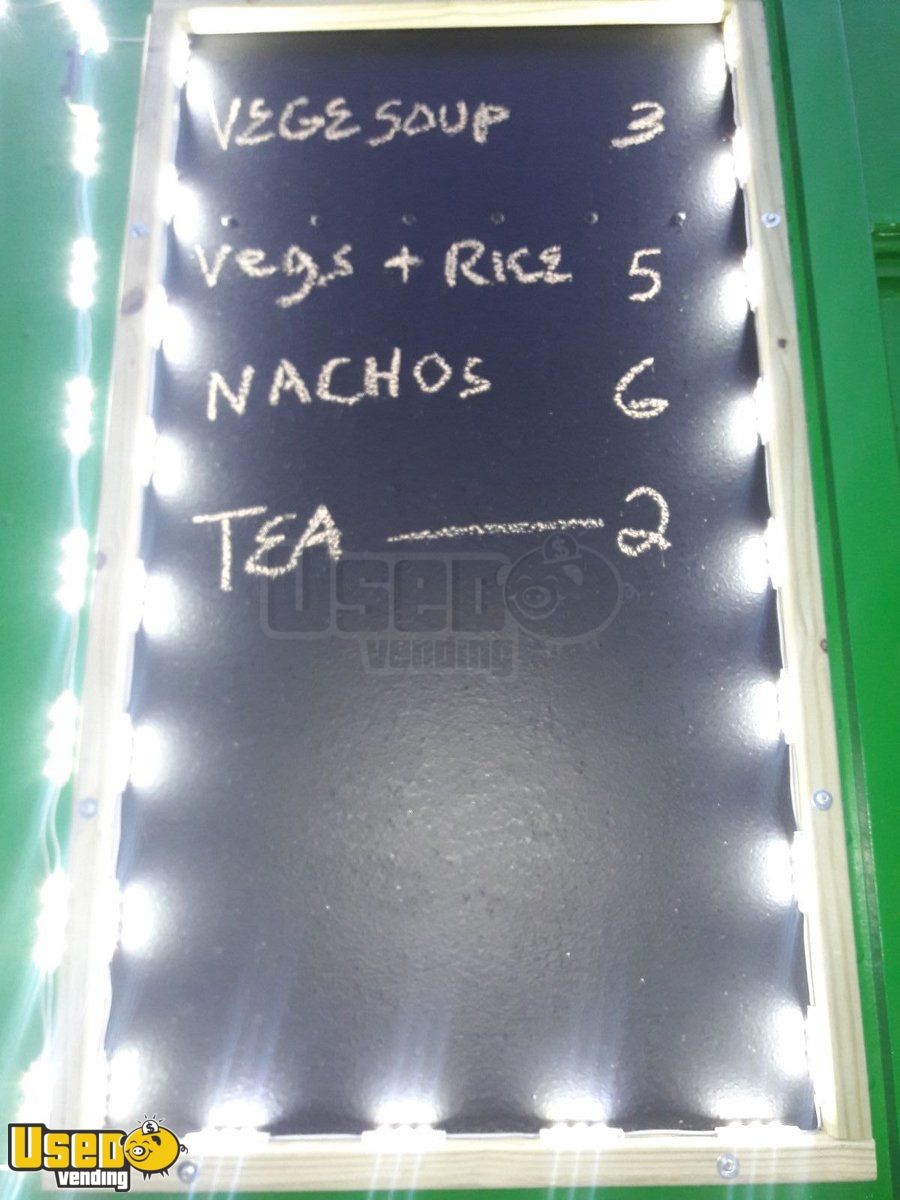 VEGE SOUP 3
Vegs + RICE 5
NACHOS 6
TEA — 2
USED
vending
USED
vending